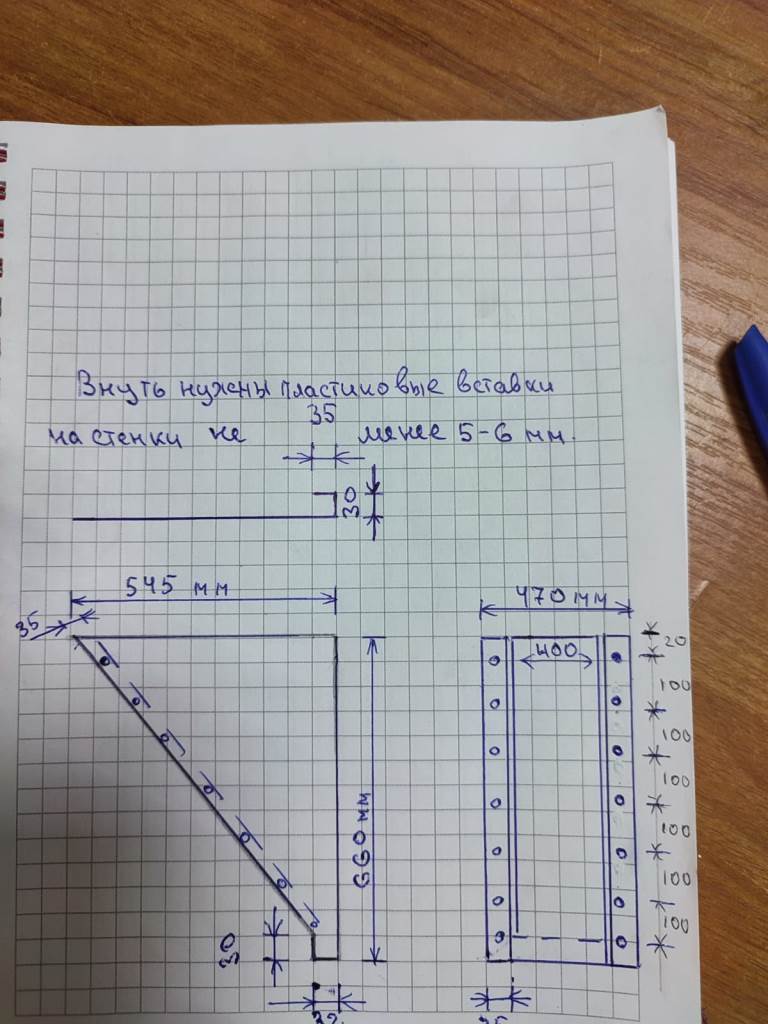 Внуть нужны пластиковые вставки
35
на стенки не менее 5-6 мм.
30
545 мм
470 мм
35
20
400
100
100
100
660 мм
100
100
30
100
32
35